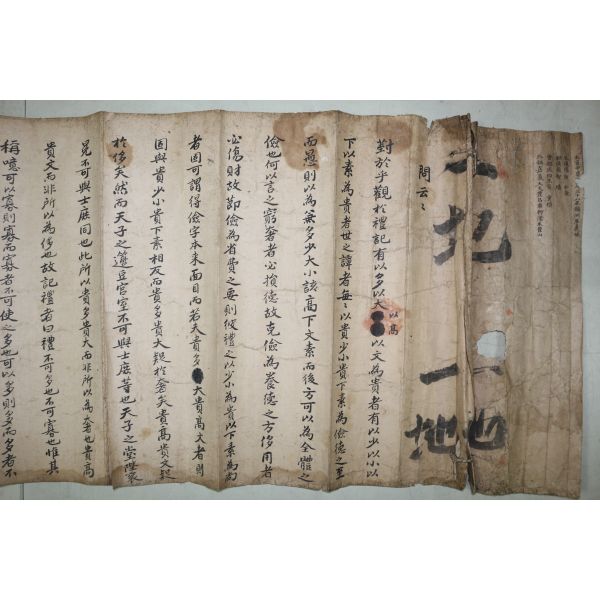 一地
問云々
對於乎觀於禮記有以多以大以高以文為貴者有以少以小以
下以素為貴者世之譚者每々以貴少小貴下素為儉德之至
而愚則以為兼多少大小該高下文素而後方可以為全體之
儉也何以言之窮奢者必損德故克儉為養德之方侈用者
必傷財故節儉為省費之要則彼禮之以少小為貴以下素為尚
者固可謂得儉字本來面目而若夫貴多大貴高文者則
固與貴少小貴下素相反而貴多貴大疑於奢矣貴高貴文疑
於侈矣然而天子之籩豆宮室不可與士庶等也天子之堂陛袞
冕不可與士庶同也此所以貴多貴大而非所以為奢也貴高
貴文而非所以為侈也故記禮者曰禮不可多也不可寡也惟其
稱噫可以寡則寡而寡者不可使之多也可以多則多而多者不